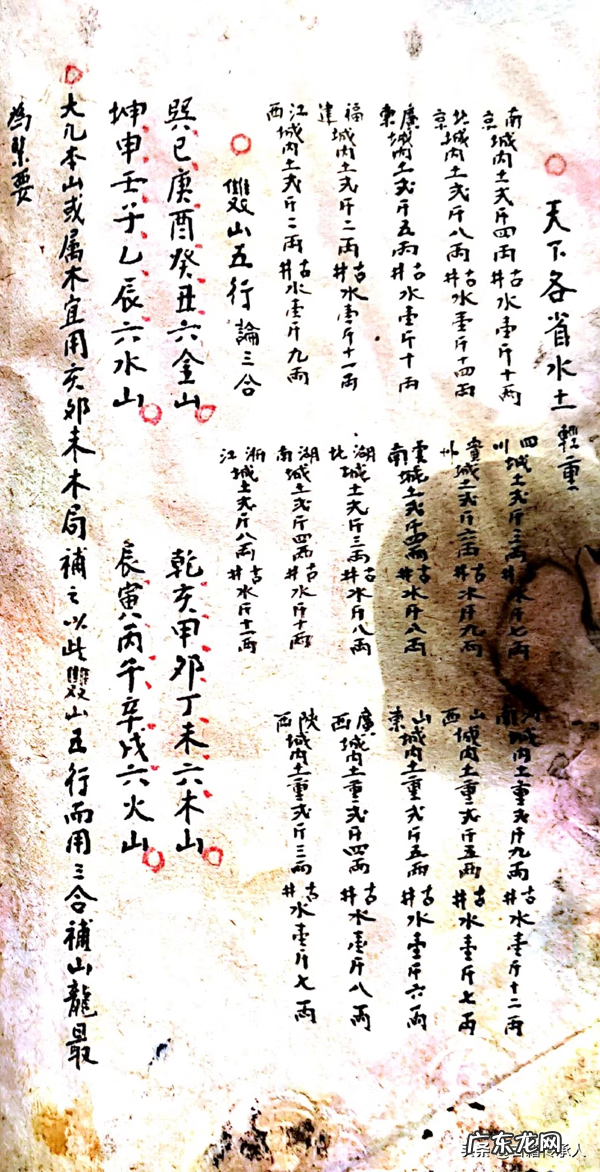 天下各省水土輕重
南京城內土弍斤四兩古井水壹斤十兩
北京城內土弍斤八兩古井水壹斤十四兩
廣東城內土弍斤五兩古井水壹斤十兩
福建城內土弍斤二兩古井水壹斤十一兩
江西城內土弍斤二兩古井水壹斤九兩
四川城土弍斤三兩古井水斤七兩
貴州城土弍斤六兩古井水斤九兩
雲南城土弍斤四兩古井水斤八兩
湖北城土弍斤三兩古井水斤八兩
湖南城土弍斤四兩古井水斤十兩
浙江城土弍斤八兩古井水斤十一兩
南城內土重弍斤九兩古井水壹斤十二兩
山西城內土重弍斤五兩古井水壹斤七兩
山東城內土重弍斤五兩古井水壹斤六兩
廣西城內土重弍斤四兩古井水壹斤八兩
陝西城內土重弍斤三兩古井水壹斤七兩
雙山五行論三合
巽巳庚酉癸丑六金山
乾亥甲卯丁未六木山
坤申壬子乙辰六水山
艮寅丙午辛戌六火山
大凡本山或属木宜用亥卯未木局補之以此雙山五行而用三合補山龍最
為緊要
广东龙网